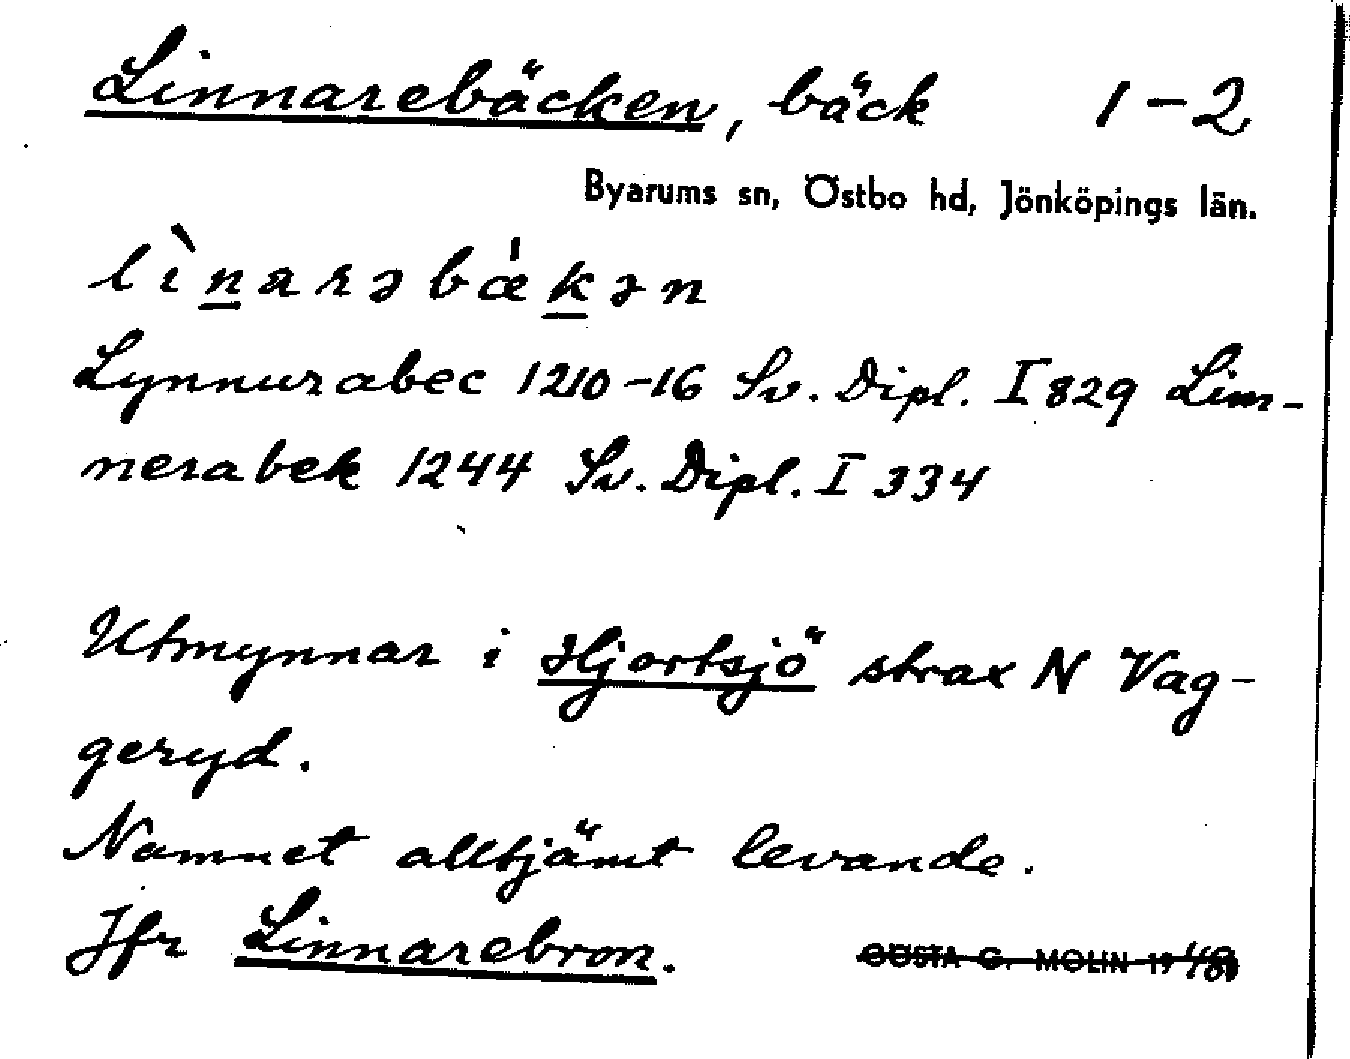 Linnarebäcken, bäck 1-2
Byarums sn, Östbo hd, Jönköpings län.
lìnarəbǽkən
Lynnurabec 1210-16 Sv. Dipl. I 829 Lin-
nerabek 1244 Sv. Dipl. I 334
Utmynnar i Hjortsjö strax N Vag-
geryd.
Namnet alltjämt levande.
Jfr Linnarebron.
GÖSTA G. MOLIN 1948